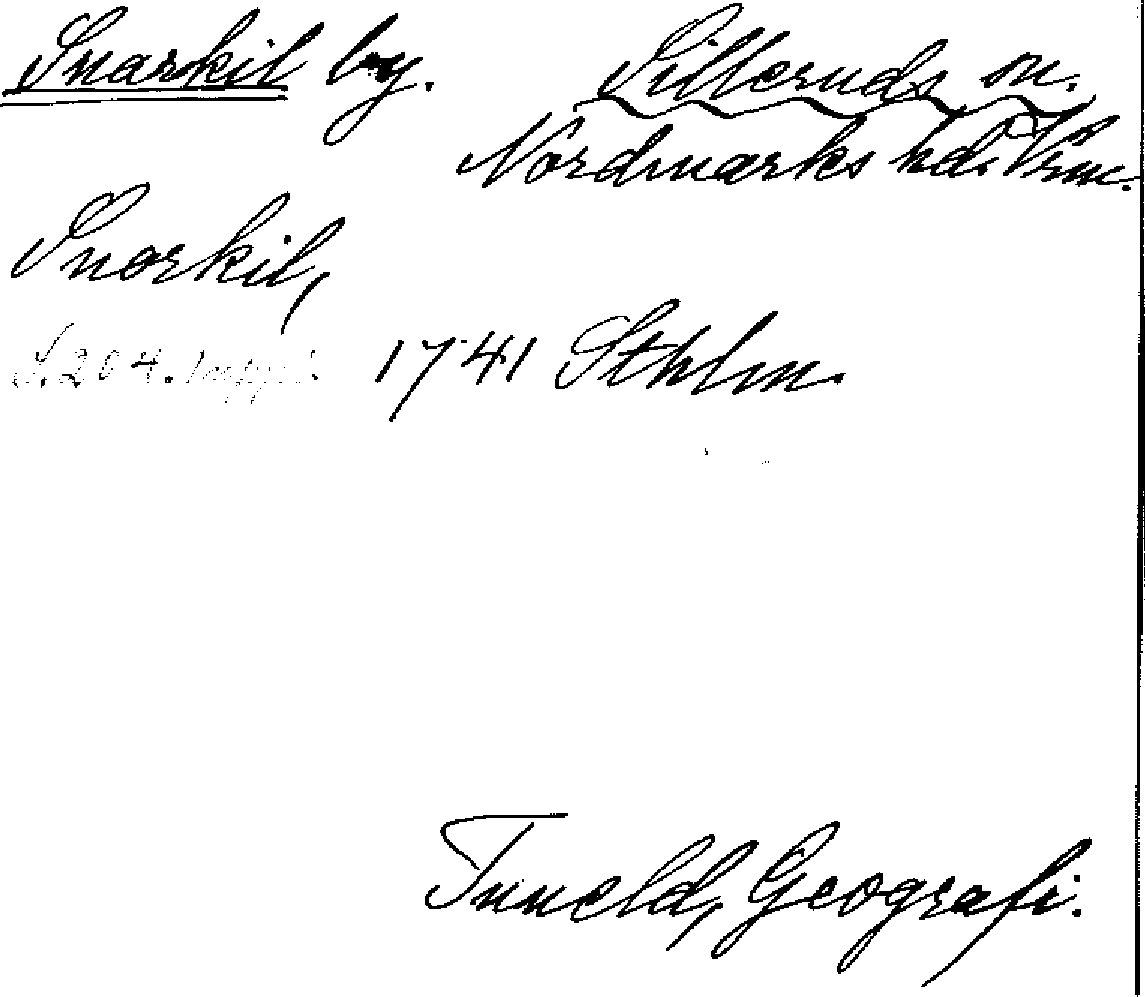 Snarkil by. Silleruds sn.
Nordmarks hd. Vrm.
Snorkil,
S. 204. 1741 Sthlm.
Tuneld, Geografi.